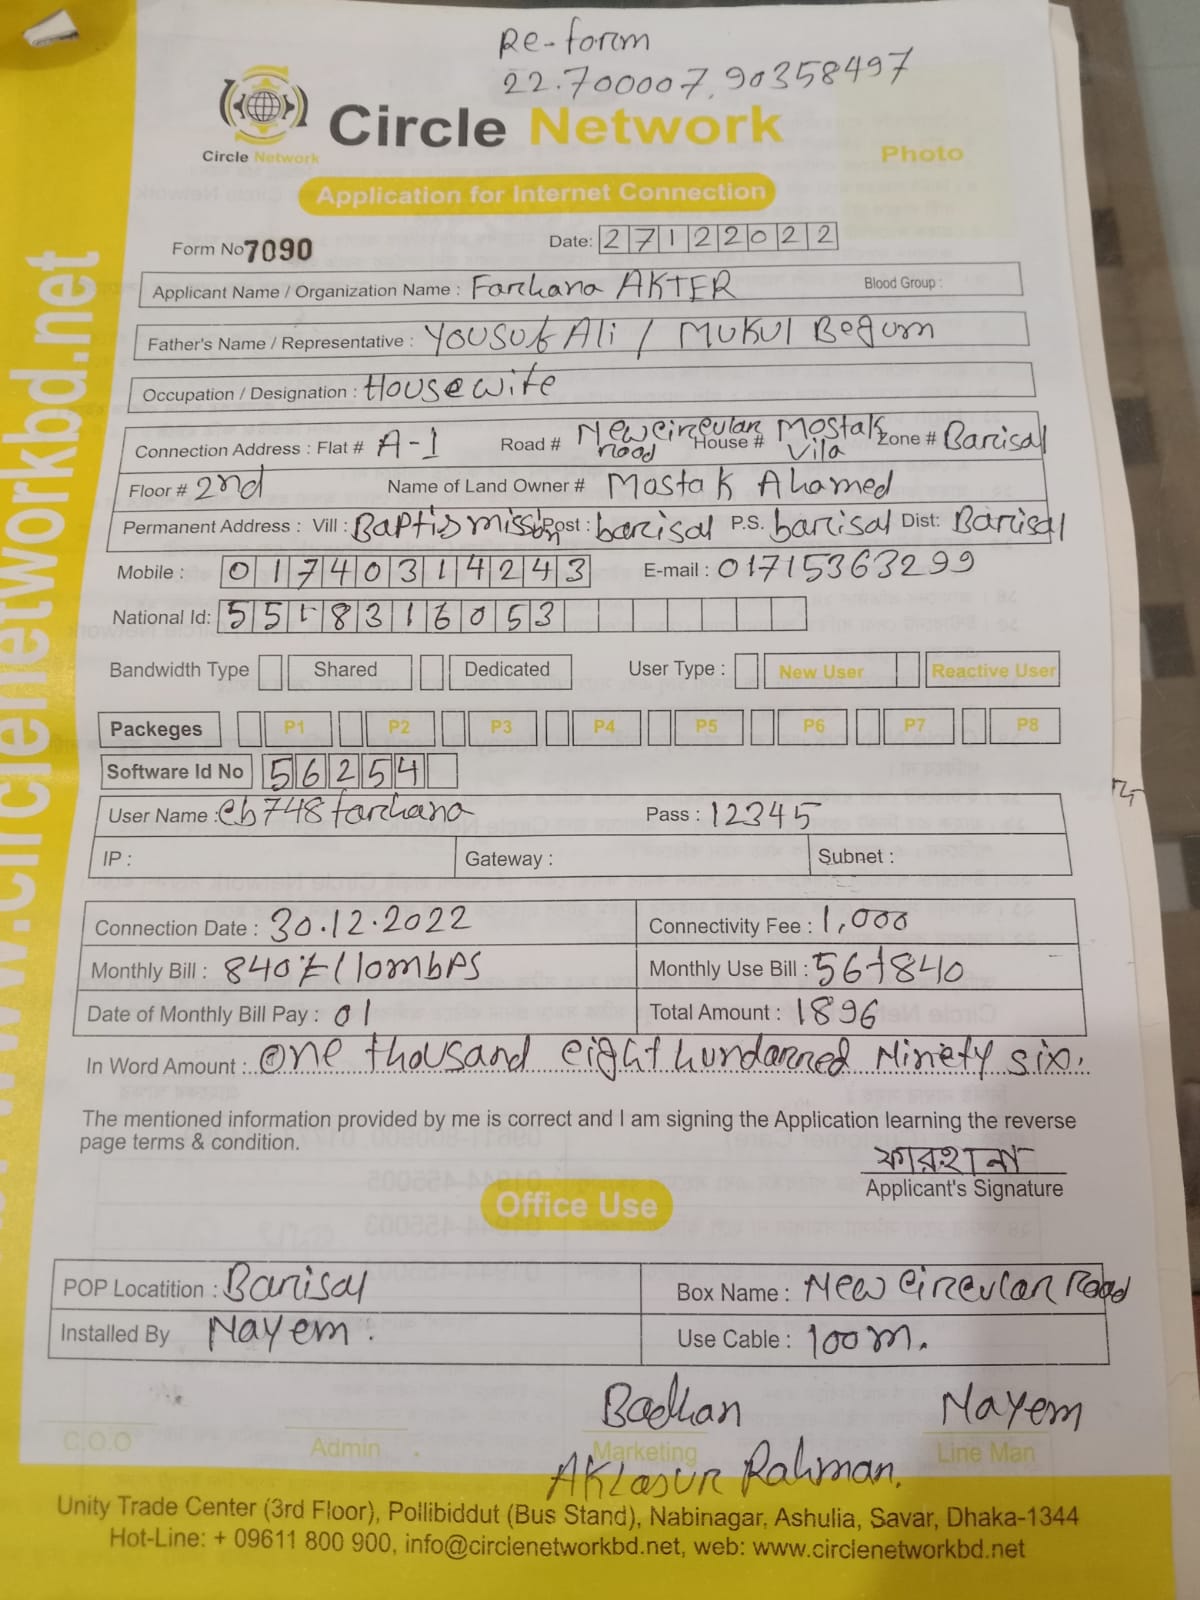 Re-form
22.700007,90358497
Circle Network
Circle Network
Photo
Application for Internet Connection
Form No 7090 Date: 27122022
Applicant Name / Organization Name : Farhana AKTER Blood Group :
Father's Name / Representative : Yousuf Ali / Mukul Begum
Occupation / Designation : Housewife
Connection Address : Flat # A-1 Road # Newcircular road House # Mostak vila Zone # Barisal
Floor # 2nd Name of Land Owner # Mostak Ahamed
Permanent Address : Vill : Baptismission Post : barisal P.S. barisal Dist: Barisal
Mobile : 01740314243 E-mail : 01715363299
National Id: 5518316053
Bandwidth Type Shared Dedicated User Type : New User Reactive User
Packeges P1 P2 P3 P4 P5 P6 P7 P8
Software Id No 56254
User Name : cb748farhana Pass : 12345
IP : Gateway : Subnet :
Connection Date : 30.12.2022 Connectivity Fee : 1,000
Monthly Bill : 840/= / 10mbps Monthly Use Bill : 56+840
Date of Monthly Bill Pay : 01 Total Amount : 1896
In Word Amount : One thousand eight hundarred Ninety six.
The mentioned information provided by me is correct and I am signing the Application learning the reverse
page terms & condition.
ফারহানা
Applicant's Signature
Office Use
POP Locatition : Barisal Box Name : New Circular Road
Installed By Nayem. Use Cable : 100m.
Badhan Nayem
C.O.O Admin Marketing Line Man
AKlasur Rahman.
Unity Trade Center (3rd Floor), Pollibiddut (Bus Stand), Nabinagar, Ashulia, Savar, Dhaka-1344
Hot-Line: + 09611 800 900, info@circlenetworkbd.net, web: www.circlenetworkbd.net
www.circlenetworkbd.net